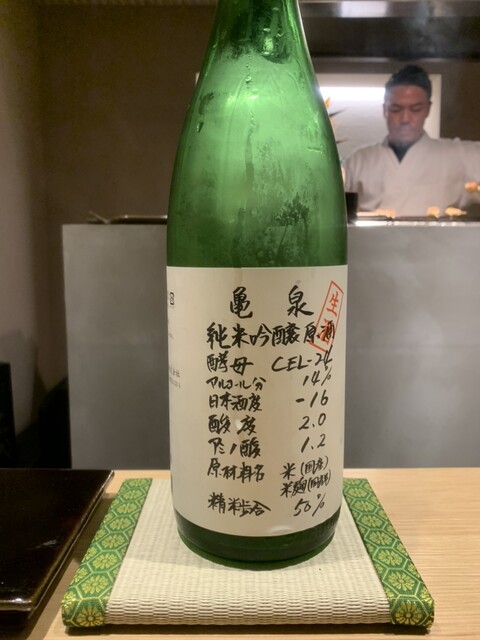 亀泉
生酒
純米吟醸原酒
酵母 CEL-24
アルコール分 14%
日本酒度 -16
酸度 2.0
アミノ酸 1.2
原材料名 米(国産)
米麹(国産)
精米歩合 50%